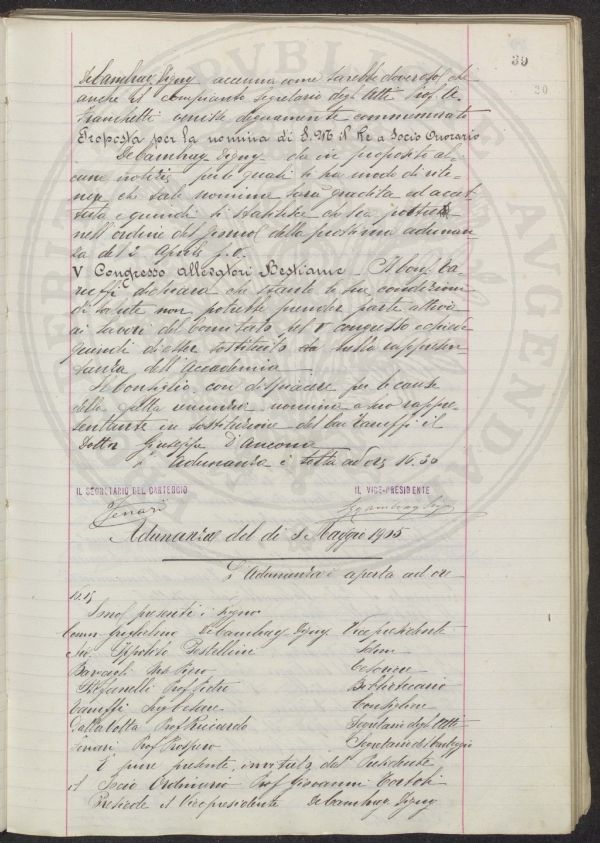 39
20
De Cambray Digny accenna come sarebbe doveroso che
anche il compianto segretario degli Atti Prof. A.
Franchetti venisse degnamente commemorato
Proposta per la nomina di S. M il Re a Socio Onorario
De Cambray Digny da in proposito al-
cune notizie per le quali si ha modo di rite-
nere che tale nomina sarà gradita ed accet-
tata e quindi si stabilisce che sia posta
nell'ordine del giorno della prossima adunan-
za del 2 Aprile p. v.
V Congresso allevatori Bestiame - Il Cons. Ca-
ruffi dichiara che stante le sue condizioni
di salute non potrebbe prender parte attiva
ai lavori del Comitato pel V congresso e chiede
quindi di esser sostituito da nella rappresen-
tanza dell'Accademia
Il Consiglio con dispiacere per le cause
della fatta rinunzia nomina a suo rappre-
sentante in sostituzione del Cav. il
Dottor Giuseppe D'Ancona
L'Adunanza è tolta ad ore 16.30
IL SEGRETARIO DEL CARTEGGIO
IL VICE-PRESIDENTE
Ferrari
Adunanza del di Maggio 1905
L'Adunanza è aperta ad ore
15.15
Sono presenti i Signo
Comm Guglielmo De Cambray Digny Vicepresidente
Ippolito Pestellini Idem
Bargagli Piero Cesoriere
Stefanelli Prof. Pietro Bibliotecario
Cesare Consigliere
Dalla Volta Prof Riccardo Segretario degli Atti
Ferrari Prof Prospero Segretario di Carteggio
È pure presente, invitato dal Presidente
il Socio Ordinario Prof Giovanni Bortoli
Presiede il Vicepresidente De Cambray Digny